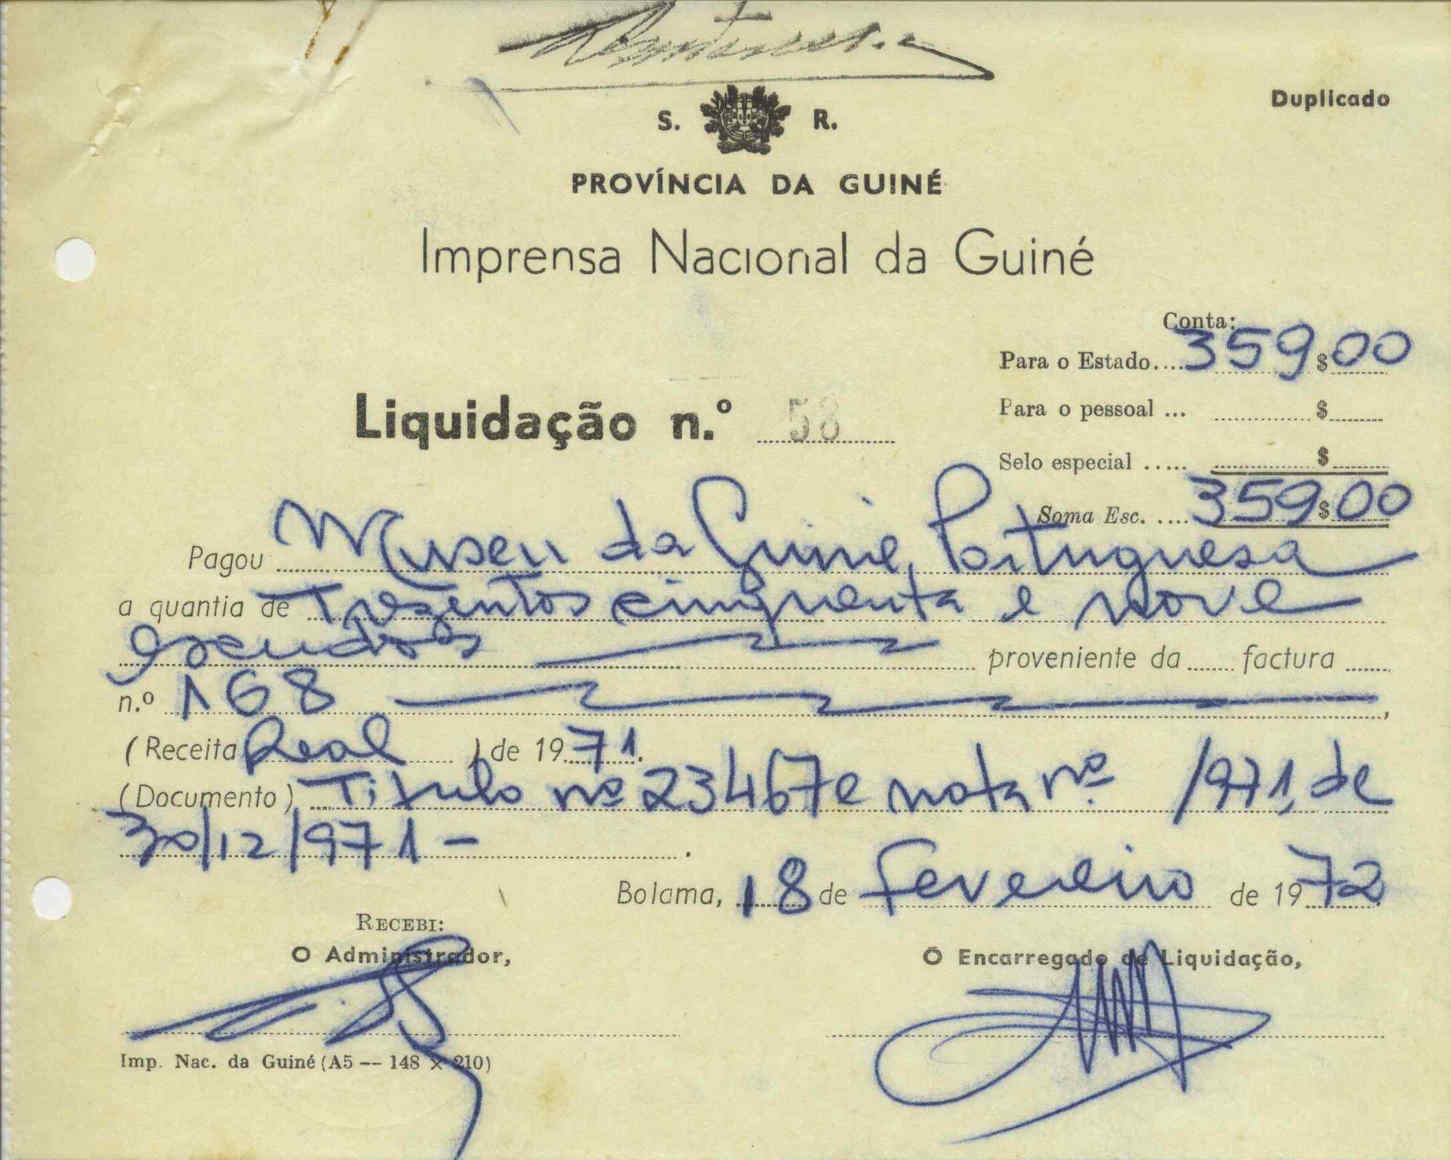 Duplicado
S. R.
PROVÍNCIA DA GUINÉ
Imprensa Nacional da Guiné
Conta:
Para o Estado.... 359$00
Para o pessoal ... $
Selo especial ..... $
Soma Esc. .... 359$00
Liquidação n.º 58
Pagou Museu da Guiné Portuguesa
a quantia de Trezentos cinquenta e nove
escudos proveniente da ...... factura ......
n.º 168 ,
(Receita Real ) de 1971.
(Documento) Titulo nº 23467 e nota nº /971, de
30/12/971 - .
Bolama, 18 de Fevereiro de 1972
RECEBI:
O Administrador,
O Encarregado de Liquidação,
Imp. Nac. da Guiné (A5 — 148 × 210)